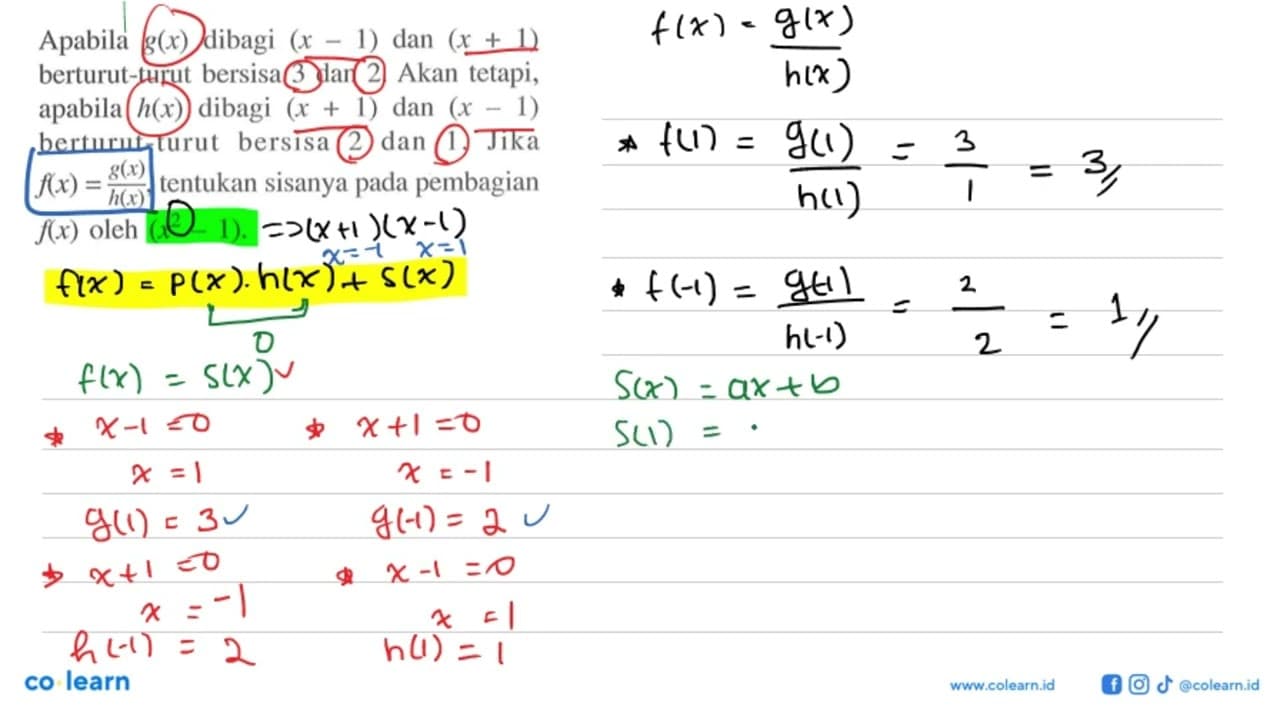 Apabila g(x) dibagi (x − 1) dan (x + 1)
berturut-turut bersisa 3 dan 2. Akan tetapi,
apabila h(x) dibagi (x + 1) dan (x − 1)
berturut-turut bersisa 2 dan 1. Jika
f(x) = g(x)/h(x), tentukan sisanya pada pembagian
f(x) oleh (x² − 1). => (x+1)(x-1)
x=-1 x=1
f(x) = P(x).h(x) + S(x)
0
f(x) = S(x)
* x-1=0 * x+1=0
x=1 x=-1
g(1) = 3 g(-1) = 2
* x+1=0 * x-1=0
x = -1 x = 1
h(-1) = 2 h(1) = 1
f(x) = g(x)/h(x)
* f(1) = g(1)/h(1) = 3/1 = 3
* f(-1) = g(-1)/h(-1) = 2/2 = 1
S(x) = ax+b
S(1) = .
co learn
www.colearn.id
@colearn.id